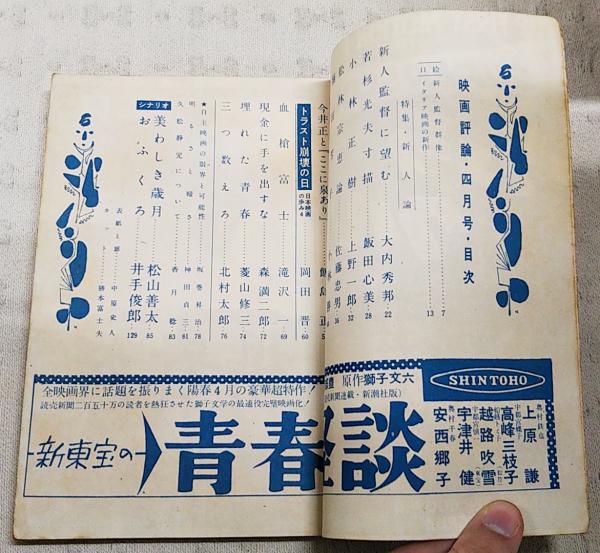 映画評論・四月号・目次
絵 新人監督群像 7
口 イタリア映画の新作 13
特集・新人論
新人監督に望む 大内秀邦 22
若杉光夫寸描 飯田心美 28
小林正樹論 上野一郎 32
松林宗恵論 佐藤忠男 36
今井正と「ここに泉あり」
トラスト崩壊の日 日本映画の歩み4 岡田晋 60
血槍富士 滝沢一 69
現金に手を出すな 森満二郎 72
埋れた青春 菱山修三 74
三つ数えろ 北村太郎 76
★自主映画の限界と可能性 坂巻昇治 78
明るさと暗さ 神田貞三 81
久松静児について 香月稔 83
シナリオ
美わしき歳月 松山善太 85
おふくろ 井手俊郎 129
表紙と扉 中原史人
カット 勝本富士夫
SHINTOHO
上原謙
高峰三枝子
越路吹雪
宇津井健
安西郷子
原作獅子文六
全映画界に話題を振りまく陽春4月の豪華超特作!
読売新聞二百五十万の読者を熱狂させた獅子文学の最適役完璧映画化!
新東宝の
青春怪談